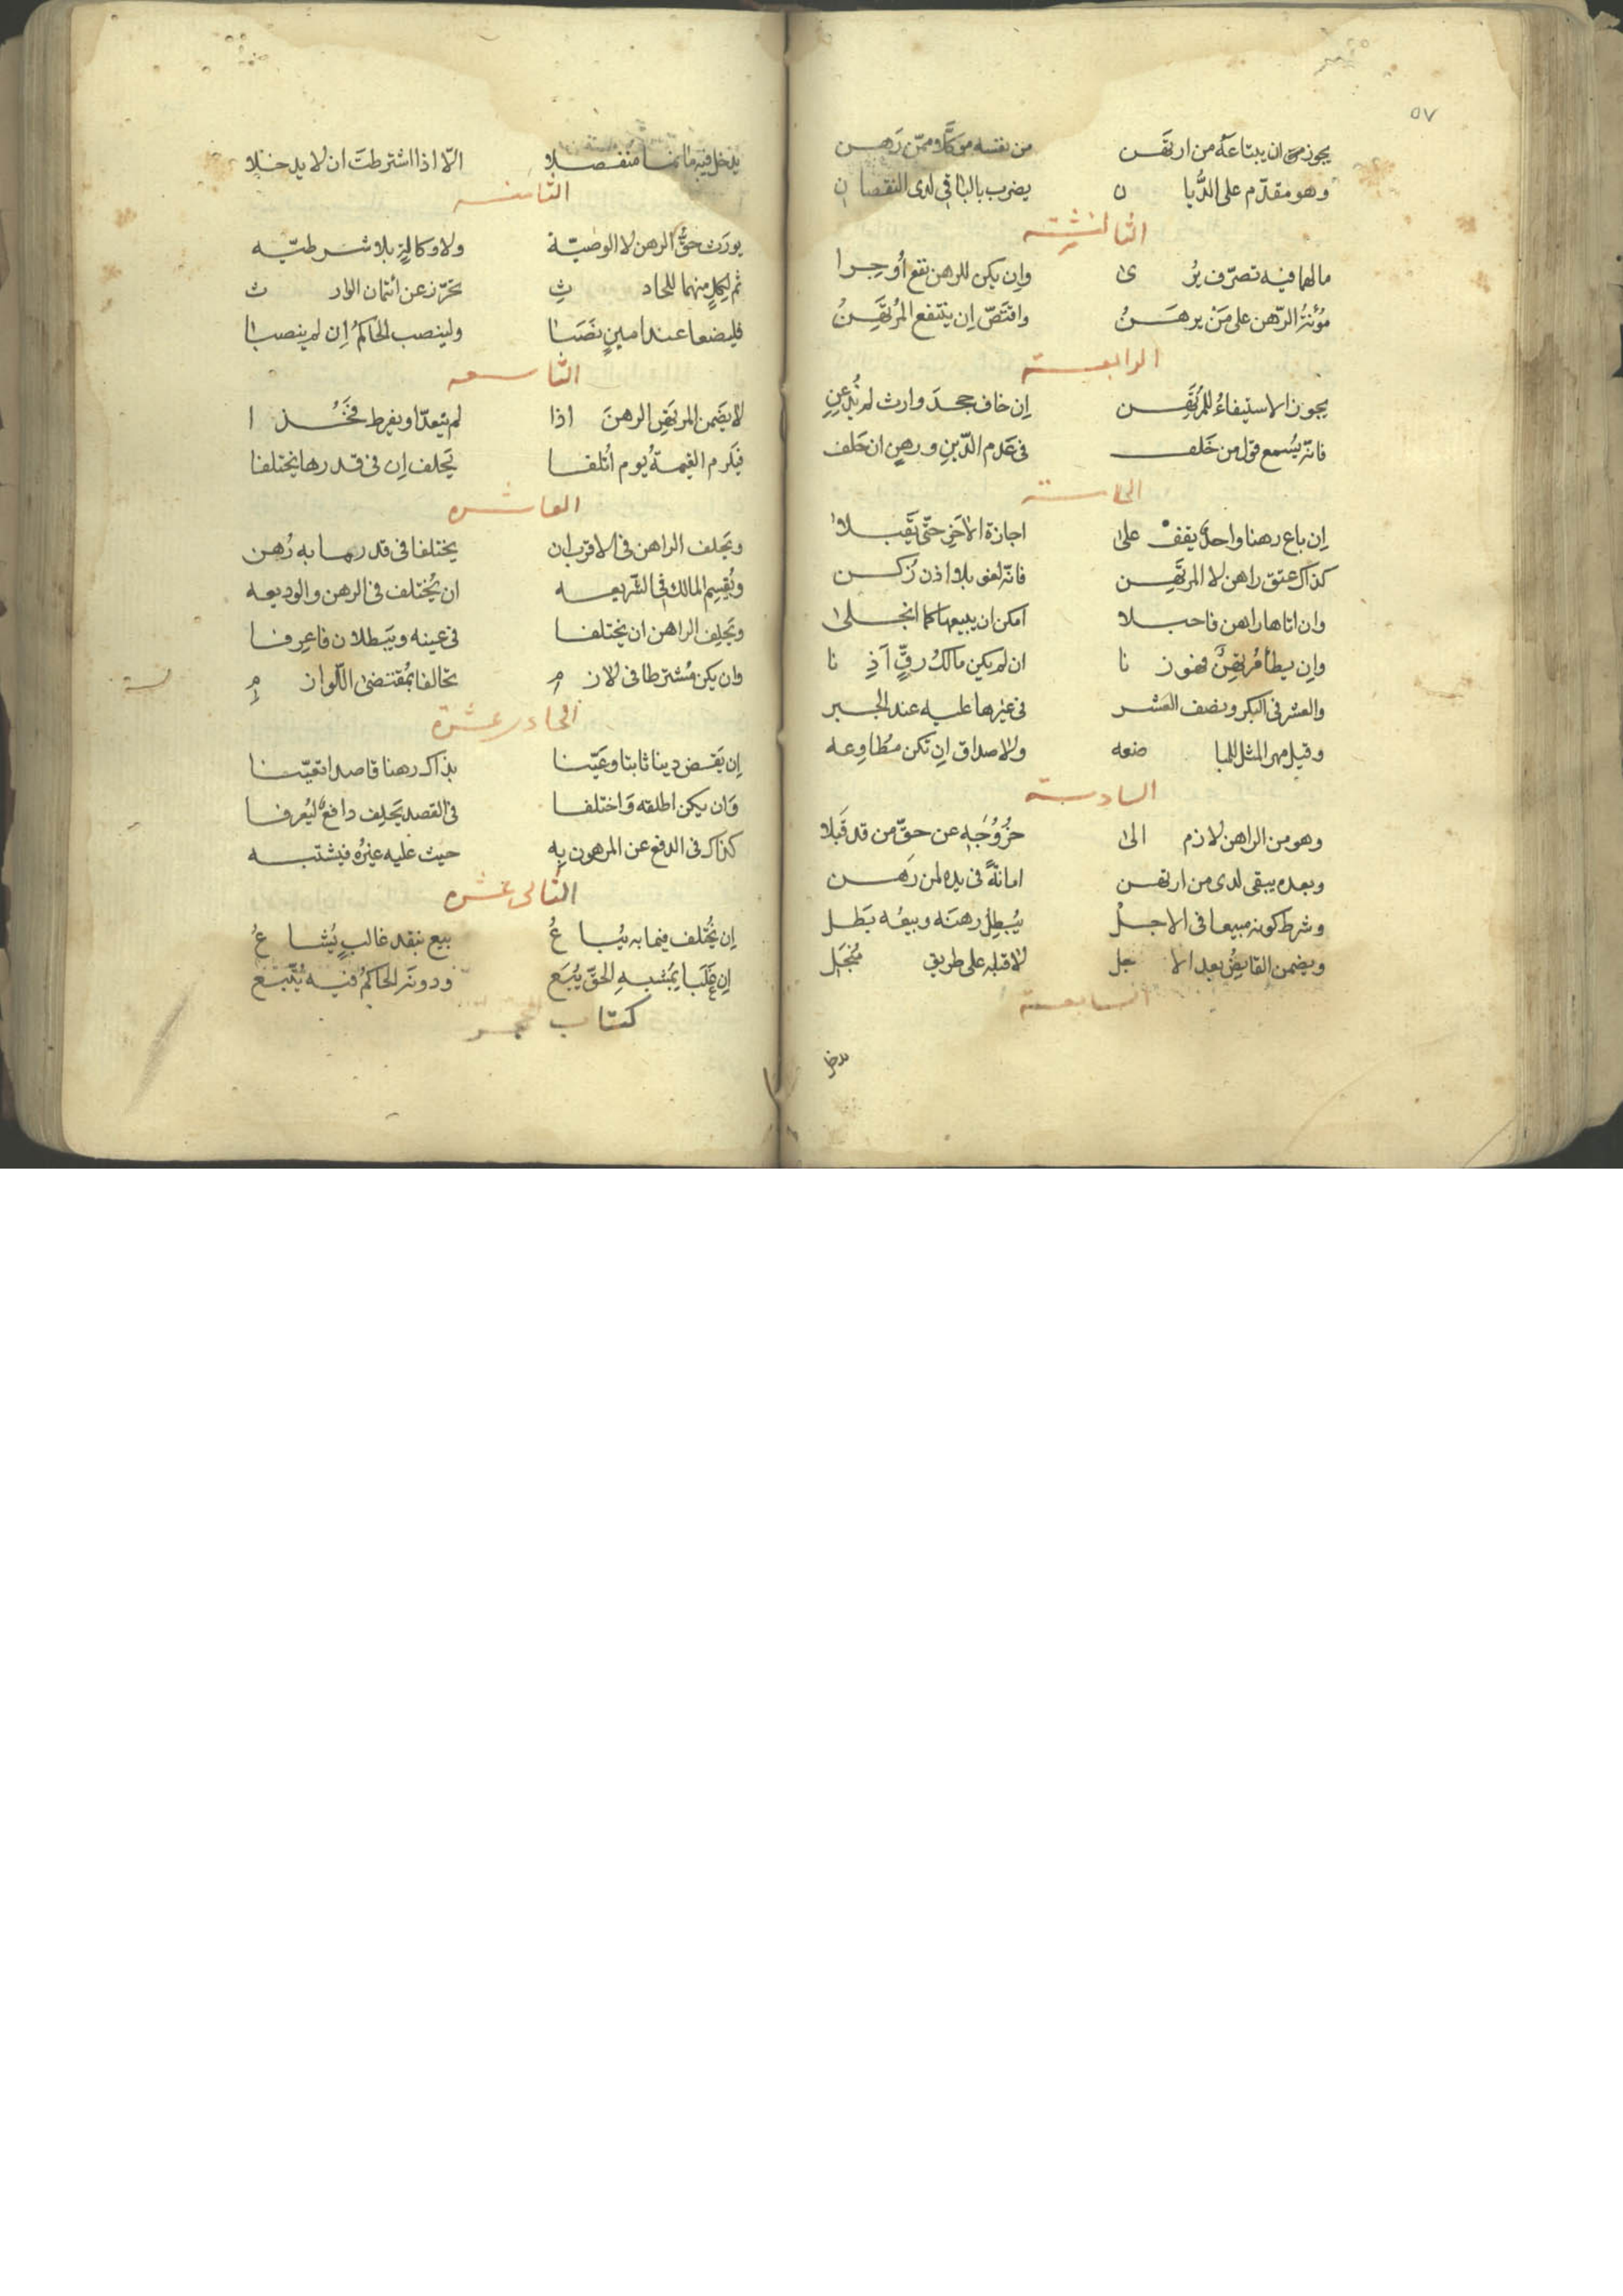 ٥٧
يجوز من ان يبتاعه من ارتهن من نفسه موكلا وممن رهن
وهو مقدم على الديان يضرب بالباقى لدى النقصان
الثالثة
مالهما فيه تصرف يرى وان يكن للرهن نفع أوجرا
مؤنة الرهن على من يرهن واقتص ان ينتفع المرتهن
الرابعة
يجوز الاستيفاء للمرتهن ان خاف جحد وارث لم يذعن
فانه يسمع قول من خلف فى عدم الدين ورهن ان حلف
الخامسة
ان باع رهنا واحد يقف على اجازة الاخر حتى يقبلا
كذاك عتق راهن لا المرتهن فانه لغو بلا اذن زكن
وان اتاها راهن فاحبلا امكن ان يبيعها كما انجلى
وان يطأ مرتهن فهو زنا ان لم يكن مالك رق آذنا
والعشر فى البكر ونصف العشر فى غيرها عليه عند الجبر
وقيل مهر المثل للمباضعه ولا صداق ان تكن مطاوعه
السادسة
وهو من الراهن لازم الى خروجه عن حق من قد قبلا
وبعده يبقى لدى من ارتهن امانة فى يده لمن رهن
وشرط كونه مبيعا فى الاجل يبطل رهنه وبيعه بطل
ويضمن القابض بعد الاجل لا قبله على طريق منجل
السابعة
يدخل
يدخل فيه ما نما منفصلا الا اذا اشترطت ان لا يدخلا
الثامنه
يورث حق الرهن لا الوصية ولا وكالة بلا شرطيه
ثم لكل منهما للحادث تحرز عن ائتمان الوارث
فليضعا عند امين نصبا ولينصب الحاكم ان لم ينصبا
التاسعه
لا يضمن المرتهن الرهن اذا لم يتعدا ويفرط فخذا
فيلزم القيمة يوم اتلفا يحلف ان فى قدرها يختلفا
العاشره
ويحلف الراهن فى الاقرب ان يختلفا فى قدر ما به رهن
ويقسم المالك فى الشريعه ان يختلف فى الرهن والوديعه
ويحلف الراهن ان يختلفا فى عينه ويبطلان فاعرفا
وان يكن مشترطا فى لازم تحالفا بمقتضى اللوازم
الحادى عشرة
ان يقض دينا ثابتا وعينا بذاك رهنا قاصدا تعينا
وان يكن اطلقه واختلفا فى القصد يحلف دافع ليعرفا
كذاك فى الدفع عن المرهون به حيث عليه غيره فيشتبه
الثانى عشره
ان يختلف فيما به يباع بيع بنقد غالب يشاع
ان غلبا بمشبه الحق يبع ودونه الحاكم فيه يتبع
كتاب